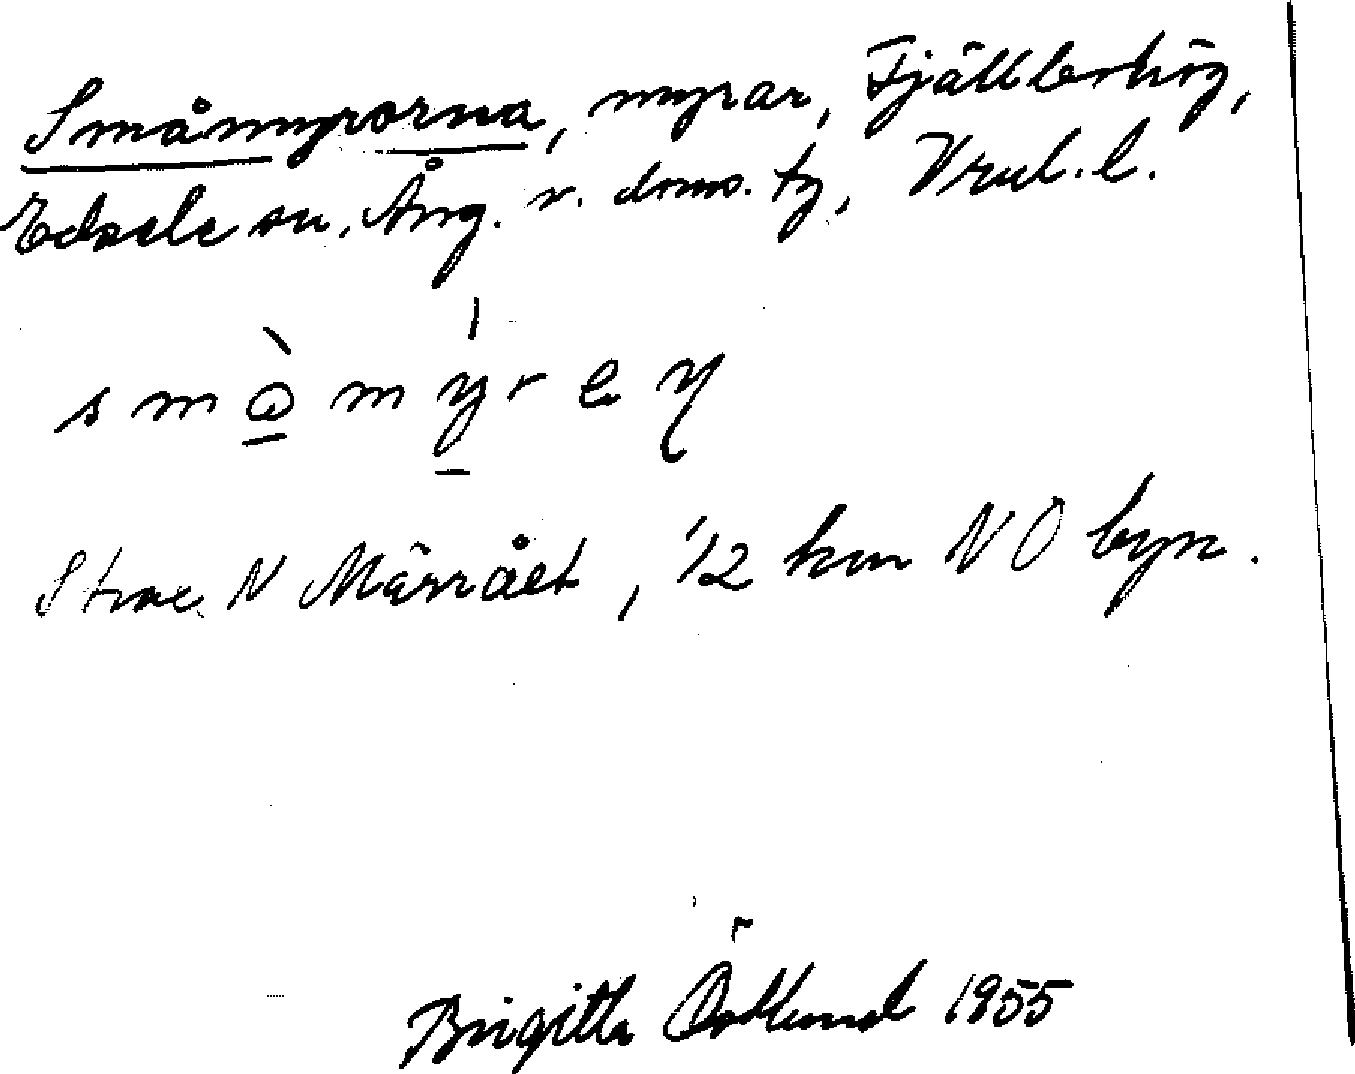 Småmyrorna, myrar, Fjällbohög,
Edsele sn, Ång. v. doms. tg, Vrul. l.
smòmýreɳ
Strax N Märrået, 12 km NO byn.
Brigitta Östlund 1955